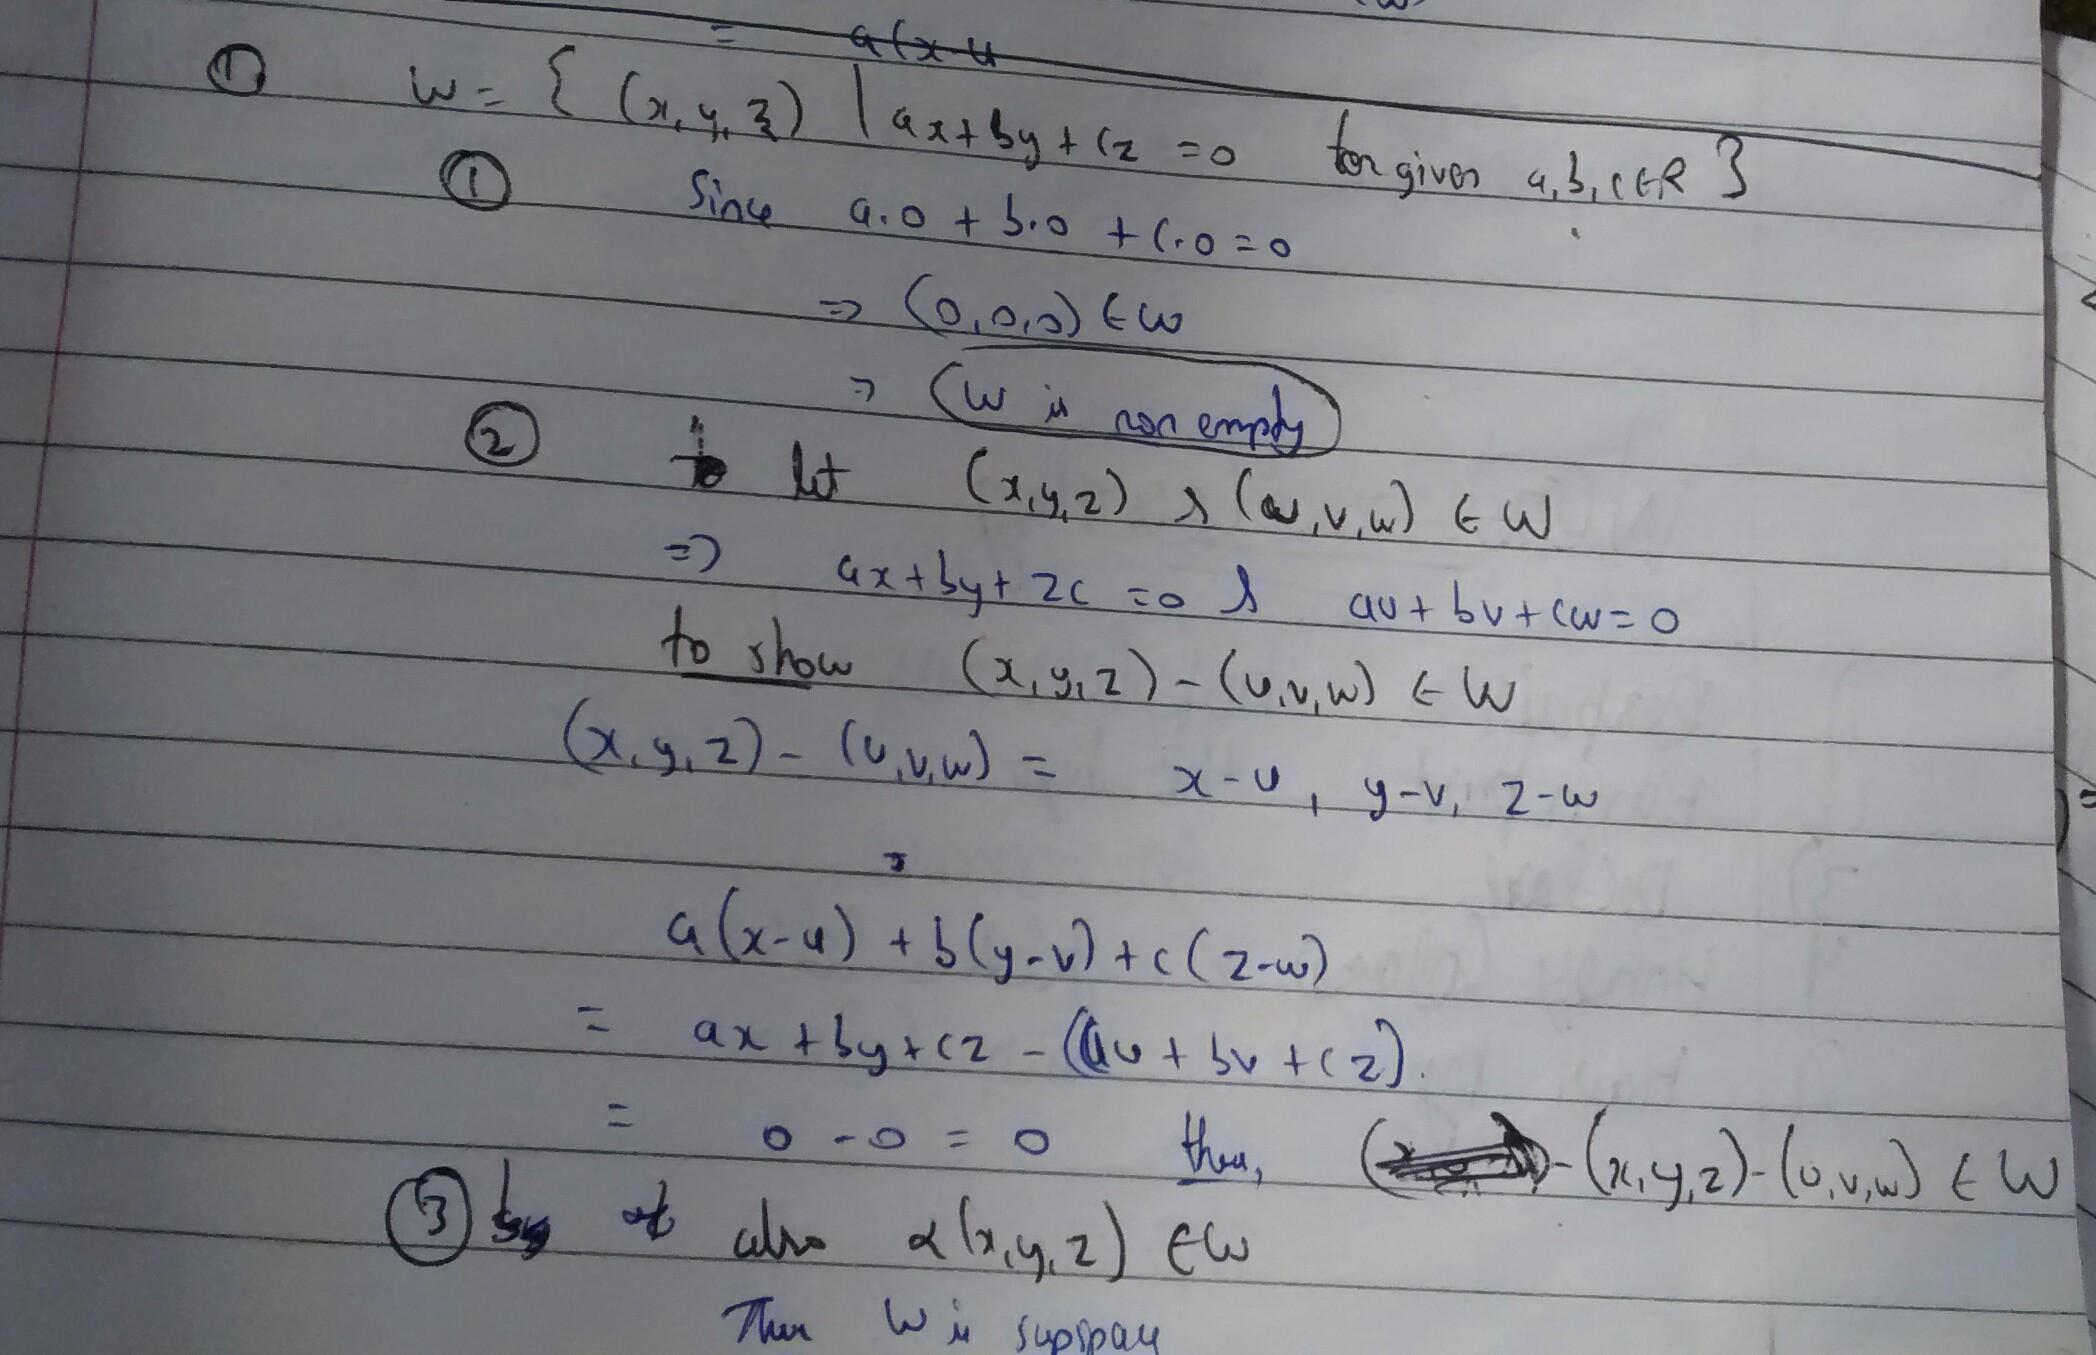 = a(x-u
① W = { (x,y,z) | ax+by+cz =0 for given a,b,c∈R }
① Since a.0 + b.0 + c.0 = 0
=> (0,0,0) ∈ W
=> W is non empty
② let (x,y,z) & (u,v,w) ∈ W
=> ax+by+zc =0 & au+bv+cw=0
to show (x,y,z)-(u,v,w) ∈ W
(x,y,z)-(u,v,w) = x-u, y-v, z-w
=
a(x-u) + b(y-v)+c(z-w)
= ax+by+cz - (au+bv+cz).
= 0-0 = 0 thus, -(x,y,z)-(u,v,w) ∈ W
③ also α(x,y,z) ∈W
Thus W is supspace